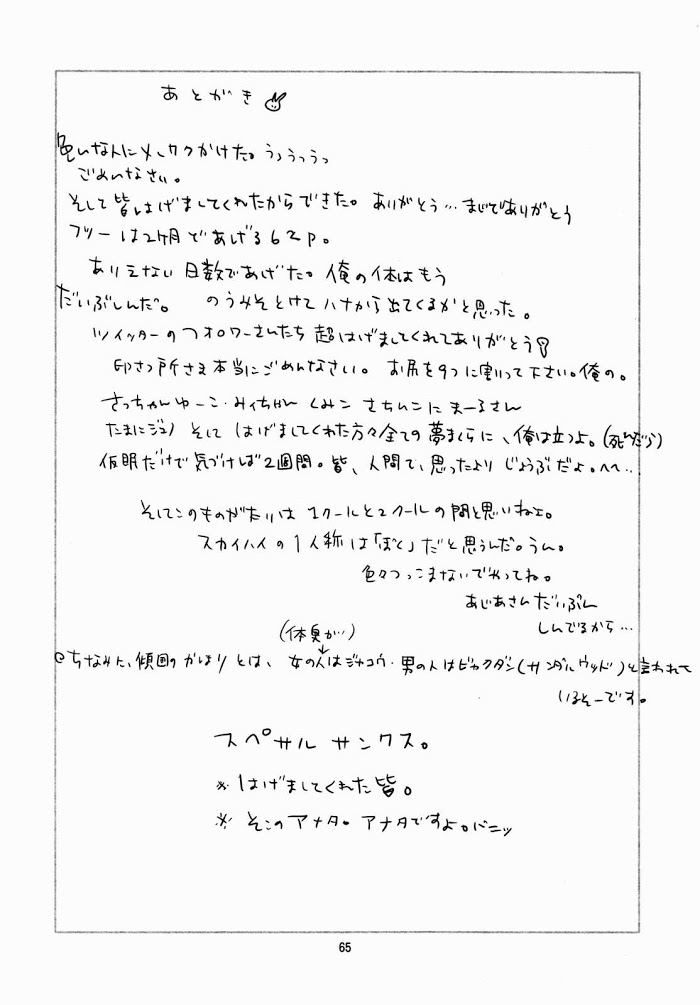 あとがき
色んな人にメーワクかけた。うっうっうっ
ごめんなさい。
そして皆はげましてくれたからできた。ありがとう…まじでありがとう
フツーは2ケ月であげる62p。
ありえない日数であげた。俺の体はもう
だいぶしんだ。 のうみそとけてハナから出てくるかと思った。
ツイッターのフォロワーさんたち超はげましてくれてありがとう
印さつ所さま本当にごめんなさい。お尻を9つに割って下さい。俺の。
さっちゃんゆーこ・みぃちゃん くみこ さちんこにまーるさん
たまにジュノ そして はげましてくれた方々全ての夢まくらに、俺は立つよ。(死んだら)
仮眠だけで気づけば2週間。皆、人間て、思ったより じょうぶだよ。へへ…
そしてこのものがたりは1クールと2クールの間と思いねェ。
スカイハイの1人称は「ぼく」だと思うんだ。うん。
色々つっこまないでやってね。
あじあさんだいぶん
しんでるから…
(体臭が…)
ちなみに、傾国のかほりとは、女の人はジャコウ・男の人はビャクダン(サンダルウッド)と言われて
いるそーです。
スペサル サンクス。
※はげましてくれた皆。
※そこのアナタ。アナタですよ。バニッ
65